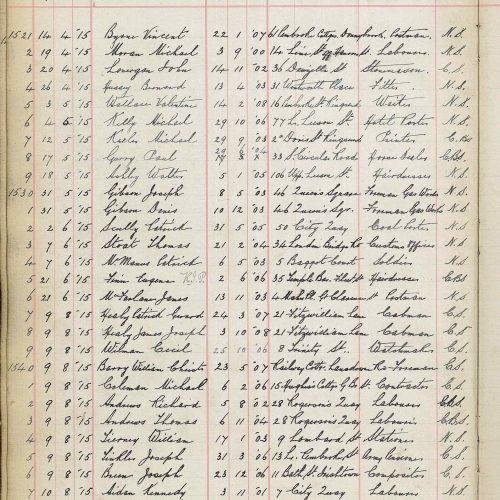 1521 14 4 '15 Byrne Vincent 22 1 '07 61 Pembroke Cottgs Donnybrook. Postman. N.S.
2 19 4 '15 Moran Michael 3 9 '00 14 Lime St Labourer N.S.
3 20 4 '15 Lonergan John 14 11 '02 36 Denzille St Stonemason. C.S.
4 26 4 '15 Hussey Bernard 13 4 '03 31 Wentworth Place Fitter. N.S.
5 3 5 '15 Wallace Valentine 14 2 '08 16 Pembroke St Ringsend Waiter N.S.
6 4 5 '15 Kelly Michael 29 10 '06 77 Lr. Leeson St Hotel Porter N.S.
7 12 5 '15 Michael. 29 9 '03 2 Doris St Ringsend Printer C.B.S
8 17 5 '15 Garry Paul 33 S. Circular Road Horse Dealer C.B.S.
9 18 5 '15 Ashby Walter 5 1 '05 106 Upr. Leeson St Hairdresser N.S.
1530 31 5 '15 Gibson Joseph 8 5 '03 46 Queen's Square Foreman Gas Works N.S.
1 31 5 '15 Gibson Denis 10 12 '03 46 Queen's Sqr. Foreman Gas Works N.S.
2 2 6 '15 Scully Patrick 31 5 '05 50 City Quay Coal Porter N.S.
3 7 6 '15 Stout Thomas 21 2 '04 34 London Bridge Rd Customs Officer N.S.
4 7 6 '15 McManus Patrick 6 5 '03 5 Baggot Court Soldier N.S.
5 21 6 '15 Finn Eugene 2 6 '06 35 Temple Bar. Fleet St Hairdresser C.B.S
6 21 6 '15 McFarlane James 13 11 '03 4 Clarence St Postman N.S.
7 9 8 '15 Healy Patrick Gerard 24 3 '07 21 Fitzwilliam Lane Cabman C.S.
8 9 8 '15 Healy James Joseph 3 10 '08 21 Fitzwilliam Lane Cabman C.S.
9 8 '15 Wilman Cecil 25 10 '06 8 Trinity St. C.S.
1540 9 8 '15 Barry William Christr 23 5 '07 Railway Cottgs Lansdown Rd Foreman C.S.
1 9 8 '15 Coleman Michael 6 2 '06 15 Hughes Cottgs Contractor C.S.
2 9 8 '15 Andrews Richard 5 8 '02 28 Rogerson's Quay Labourer C.B.S.
3 9 8 '15 Andrews Thomas 6 11 '04 28 Rogerson's Quay Labourer C.B.S.
4 9 8 '15 Tierney William 17 1 '03 9 Lombard St Stationer N.S.
5 9 8 '15 Tinkler Joseph 31 3 '06 13 Lr. Pembroke St Army Pension C.S.
9 8 '15 Breen Joseph 23 12 '06 11 Bath St Irishtown Compositor C.S.
10 8 '15 Aiden Kennedy 3 11 '01 7 City Quay Labourer N.S.